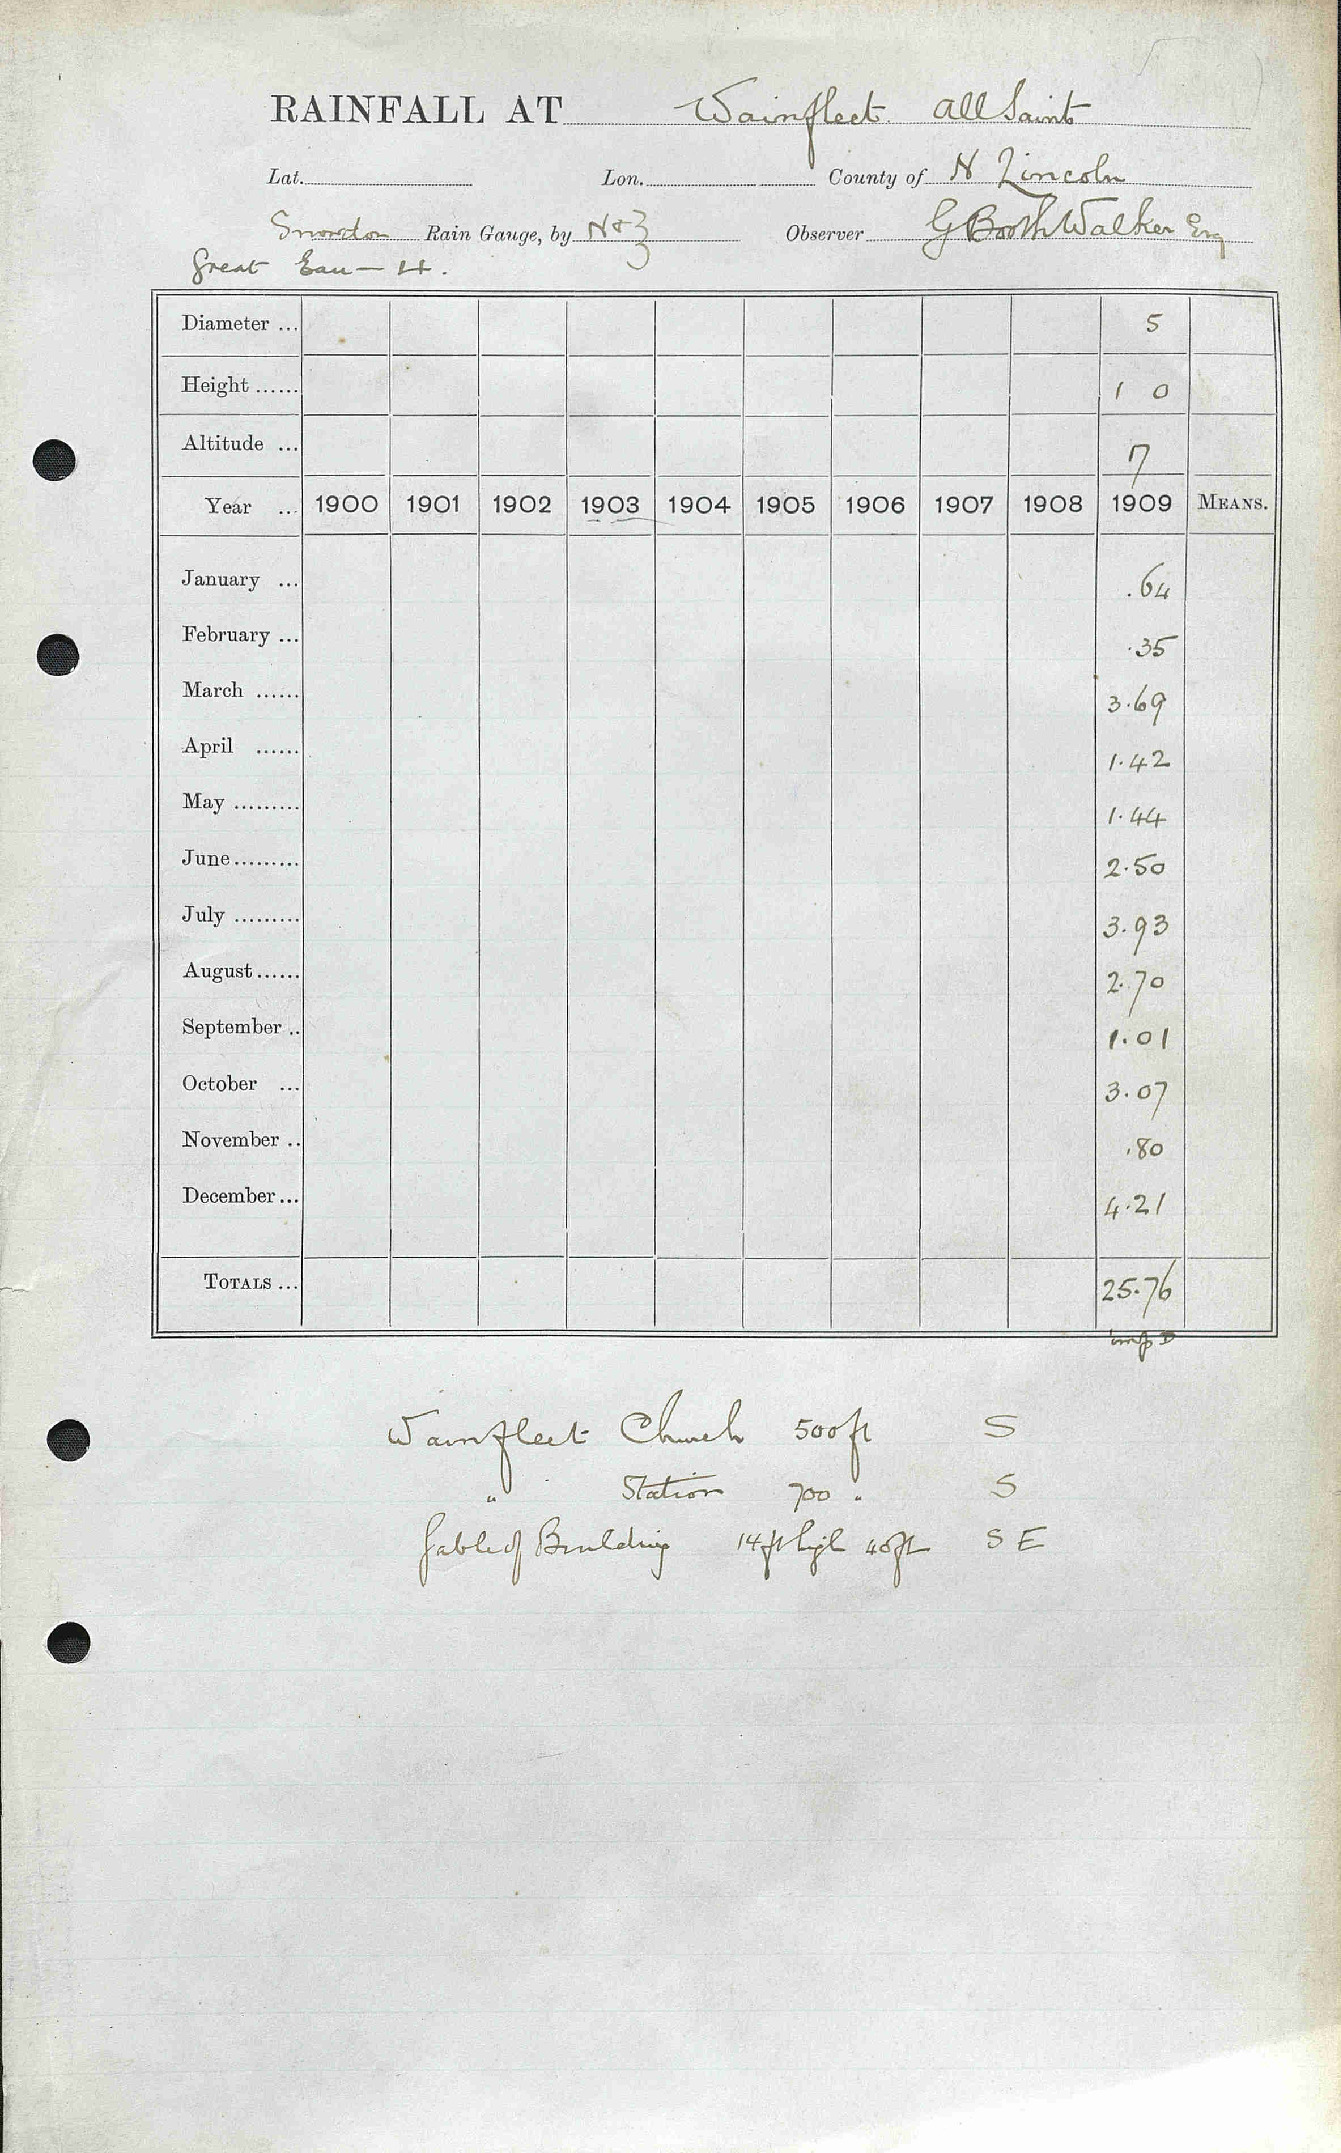 RAINFALL AT Wainfleet All Saints
Lat. Lon. County of N Lincoln
Snowdon Rain Gauge, by N & Z Observer G Booth Walker Esq
Great Eau — 4.
Diameter ... 5
Height ...... 1 0
Altitude ... 7
Year ... 1900 1901 1902 1903 1904 1905 1906 1907 1908 1909 MEANS.
January ... .64
February ... .35
March ...... 3.69
April ...... 1.42
May ......... 1.44
June ......... 2.50
July ......... 3.93
August ...... 2.70
September .. 1.01
October ... 3.07
November .. .80
December ... 4.21
TOTALS ... 25.76
Wainfleet Church 500 ft S
" Station 700 " S
Gable of Building 14 ft high 40 ft S E